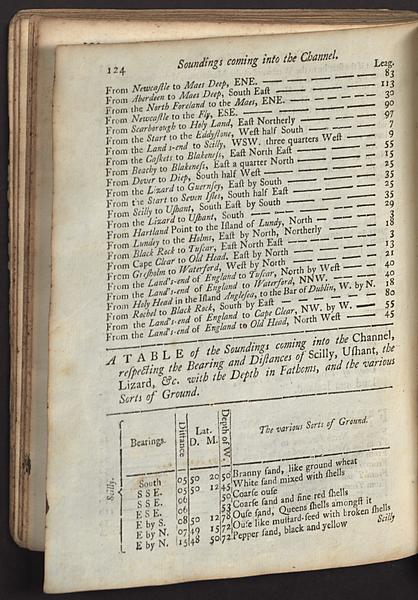 124 Soundings coming into the Channel.
Leag.
From Newcaſtle to Maes Deep, ENE. — 83
From Aberdeen to Maes Deep, South Eaſt — 113
From the North Foreland to the Maes, ENE. — 30
From Newcaſtle to the Fly, ESE. — 90
From Scarborough to Holy Land, Eaſt Northerly — 97
From the Start to the Eddyſtone, Weſt half South — 7
From the Land s-end to Scilly, WSW. three quarters Weſt — 9
From the Caſkets to Blakeneſs, Eaſt North Eaſt — 55
From Beachy to Blakeneſs, Eaſt a quarter North — 15
From Dover to Diep, South half Weſt — 25
From the Lizard to Guernſey, Eaſt by South — 35
From the Start to Seven Iſles, South half Eaſt — 25
From Scilly to Uſhant, South Eaſt by South — 35
From the Lizard to Uſhant, South — 29
From Hartland Point to the Iſland of Lundy, North — 3
From Lundey to the Holms, Eaſt by North, Northerly — 18
From Black Rock to Tuſcar, Eaſt North Eaſt — 3
From Cape Clear to Old Head, Eaſt by North — 13
From Greſholm to Waterford, Weſt by North — 21
From the Land's-end of England to Tuſcar, North by Weſt — 40
From the Land's-end of England to Waterford, NNW. — 40
From Holy Head in the Iſland Angleſea, to the Bar of Dublin, W. by N. 18
From Rochel to Black Rock, South by Eaſt — 80
From the Land's-end of England to Cape Clear, NW. by W. — 55
From the Land's-end of England to Old Head, North Weſt — 45
A TABLE of the Soundings coming into the Channel,
reſpecting the Bearing and Diſtances of Scilly, Uſhant, the
Lizard, &c. with the Depth in Fathoms, and the various
Sorts of Ground.
Bearings. Diſtance Lat. D. M. Depth of W. The various Sorts of Ground.
Scilly.
South 05 50 20 50 Branny ſand, like ground wheat
S S E. 05 50 12 45 White ſand mixed with ſhells
S S E. 06 50 Coarſe ouſe
E S E. 06 53 Coarſe ſand and fine red ſhells
E by S. 08 50 12 78 Ouſe ſand, Queens ſhells amongſt it
E by N. 07 49 15 72 Ouſe like muſtard-ſeed with broken ſhells
E by N. 15 48 50 72 Pepper ſand, black and yellow
Scilly